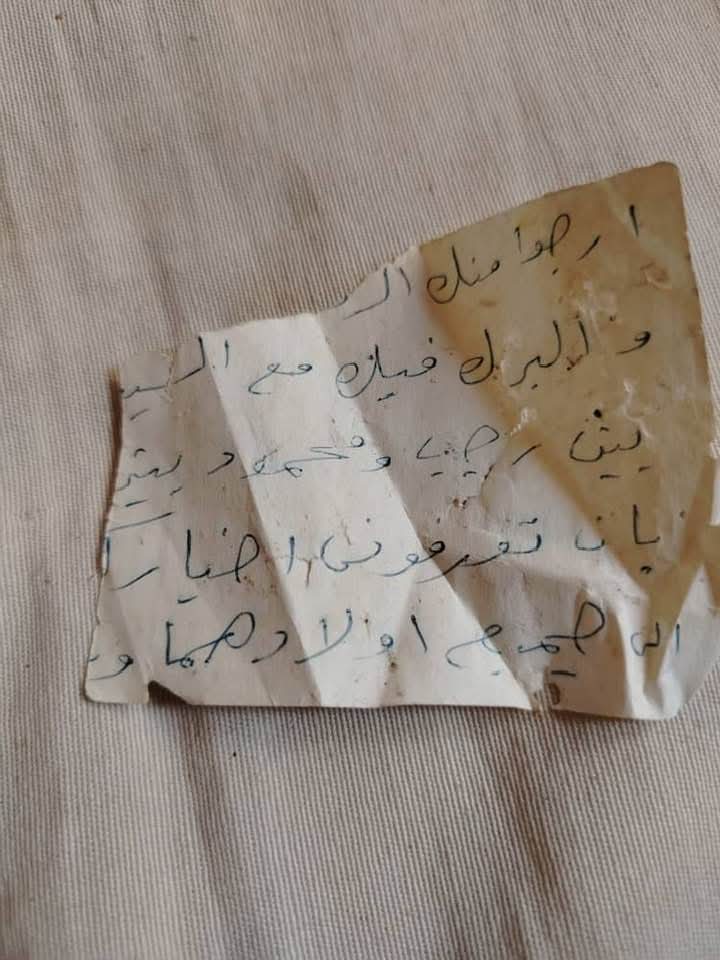 ارجوا منك الر
و البرك فيك مع السيد
رجب ومحمود
بان تعرفونى اخبارك
الى جميع اولادهما و